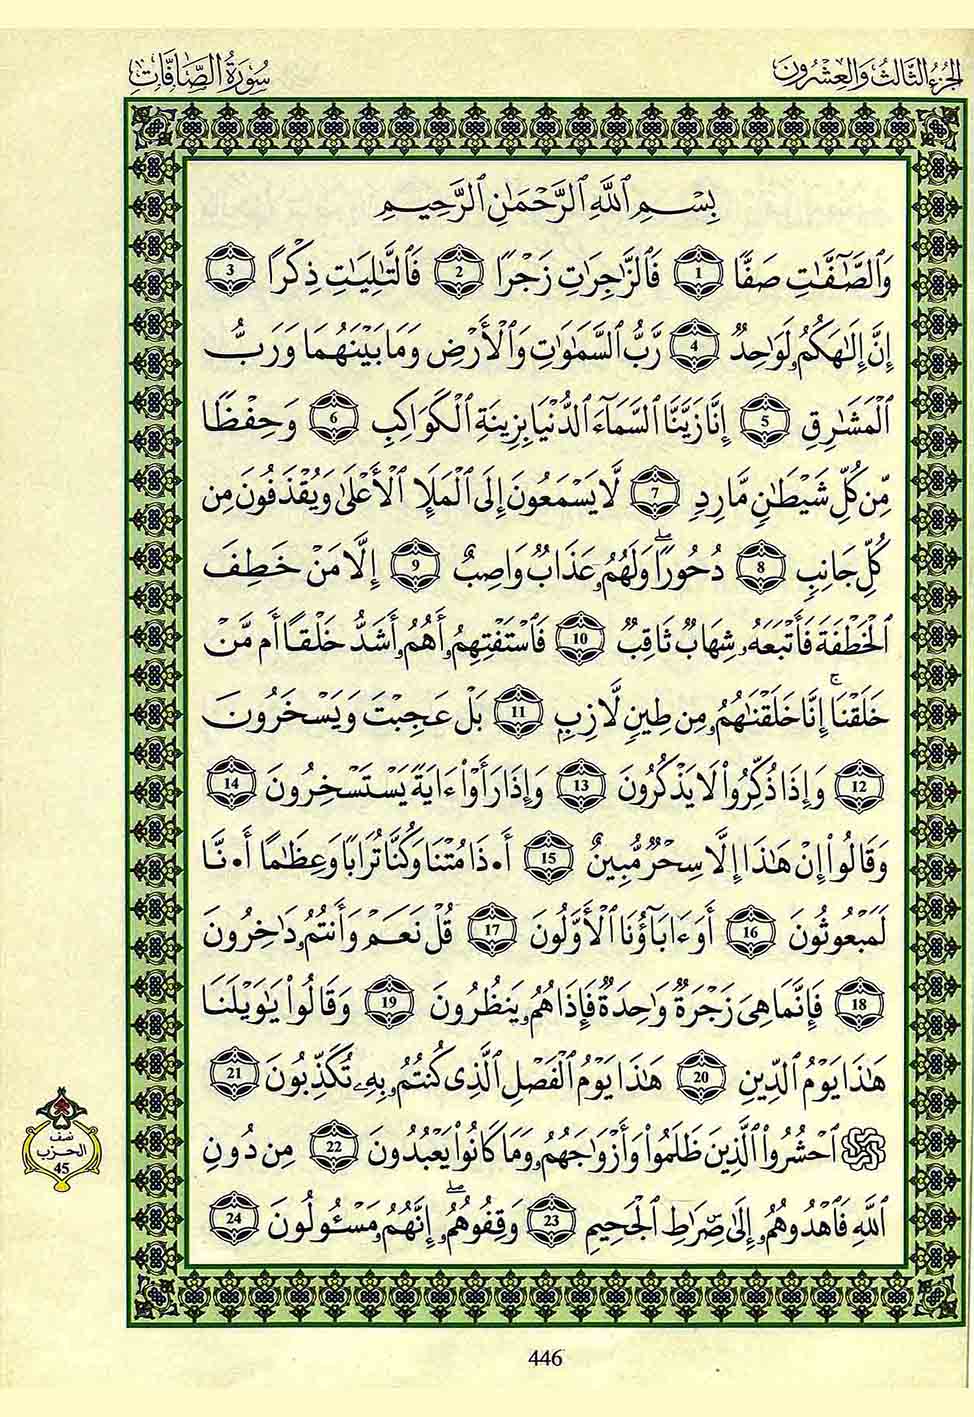 الجُزْءُ الثَّالِثُ وَالعِشْرُونَ
سُورَةُ الصَّافَّاتِ
بِسْمِ ٱللَّهِ ٱلرَّحْمَٰنِ ٱلرَّحِيمِ
وَٱلصَّٰٓفَّٰتِ صَفًّا 1 فَٱلزَّٰجِرَٰتِ زَجْرًا 2 فَٱلتَّٰلِيَٰتِ ذِكْرًا 3
إِنَّ إِلَٰهَكُمُۥ لَوَٰحِدٌ 4 رَّبُّ ٱلسَّمَٰوَٰتِ وَٱلْأَرْضِ وَمَا بَيْنَهُمَا وَرَبُّ
ٱلْمَشَٰرِقِ 5 إِنَّا زَيَّنَّا ٱلسَّمَآءَ ٱلدُّنْيَا بِزِينَةِ ٱلْكَوَاكِبِ 6 وَحِفْظًا
مِّن كُلِّ شَيْطَٰنٍ مَّارِدٍ 7 لَّا يَسْمَعُونَ إِلَى ٱلْمَلَإِ ٱلْأَعْلَىٰ وَيُقْذَفُونَ مِن
كُلِّ جَانِبٍ 8 دُحُورًا ۖ وَلَهُمُۥ عَذَابٌ وَاصِبٌ 9 إِلَّا مَنْ خَطِفَ
ٱلْخَطْفَةَ فَأَتْبَعَهُۥ شِهَابٌ ثَاقِبٌ 10 فَٱسْتَفْتِهِمُۥ أَهُمُۥ أَشَدُّ خَلْقًا أَم مَّنْ
خَلَقْنَا ۚ إِنَّا خَلَقْنَٰهُمُۥ مِن طِينٍ لَّازِبٍ 11 بَلْ عَجِبْتَ وَيَسْخَرُونَ
12 وَإِذَا ذُكِّرُوا۟ لَا يَذْكُرُونَ 13 وَإِذَا رَأَوْا۟ ءَايَةً يَسْتَسْخِرُونَ 14
وَقَالُوٓا۟ إِنْ هَٰذَا إِلَّا سِحْرٌ مُّبِينٌ 15 أَ•ذَا مُتْنَا وَكُنَّا تُرَابًا وَعِظَٰمًا أَ•نَّا
لَمَبْعُوثُونَ 16 أَوَءَابَآؤُنَا ٱلْأَوَّلُونَ 17 قُلْ نَعَمْ وَأَنتُمُۥ دَٰخِرُونَ
18 فَإِنَّمَا هِىَ زَجْرَةٌ وَٰحِدَةٌ فَإِذَا هُمُۥ يَنظُرُونَ 19 وَقَالُوا۟ يَٰوَيْلَنَا
هَٰذَا يَوْمُ ٱلدِّينِ 20 هَٰذَا يَوْمُ ٱلْفَصْلِ ٱلَّذِى كُنتُمُۥ بِهِۦ تُكَذِّبُونَ 21
۞ ٱحْشُرُوا۟ ٱلَّذِينَ ظَلَمُوا۟ وَأَزْوَٰجَهُمُۥ وَمَا كَانُوا۟ يَعْبُدُونَ 22 مِن دُونِ
ٱللَّهِ فَٱهْدُوهُمُۥ إِلَىٰ صِرَٰطِ ٱلْجَحِيمِ 23 وَقِفُوهُمُۥ ۖ إِنَّهُمُۥ مَسْـُٔولُونَ 24
نصف
الحزب
45
446